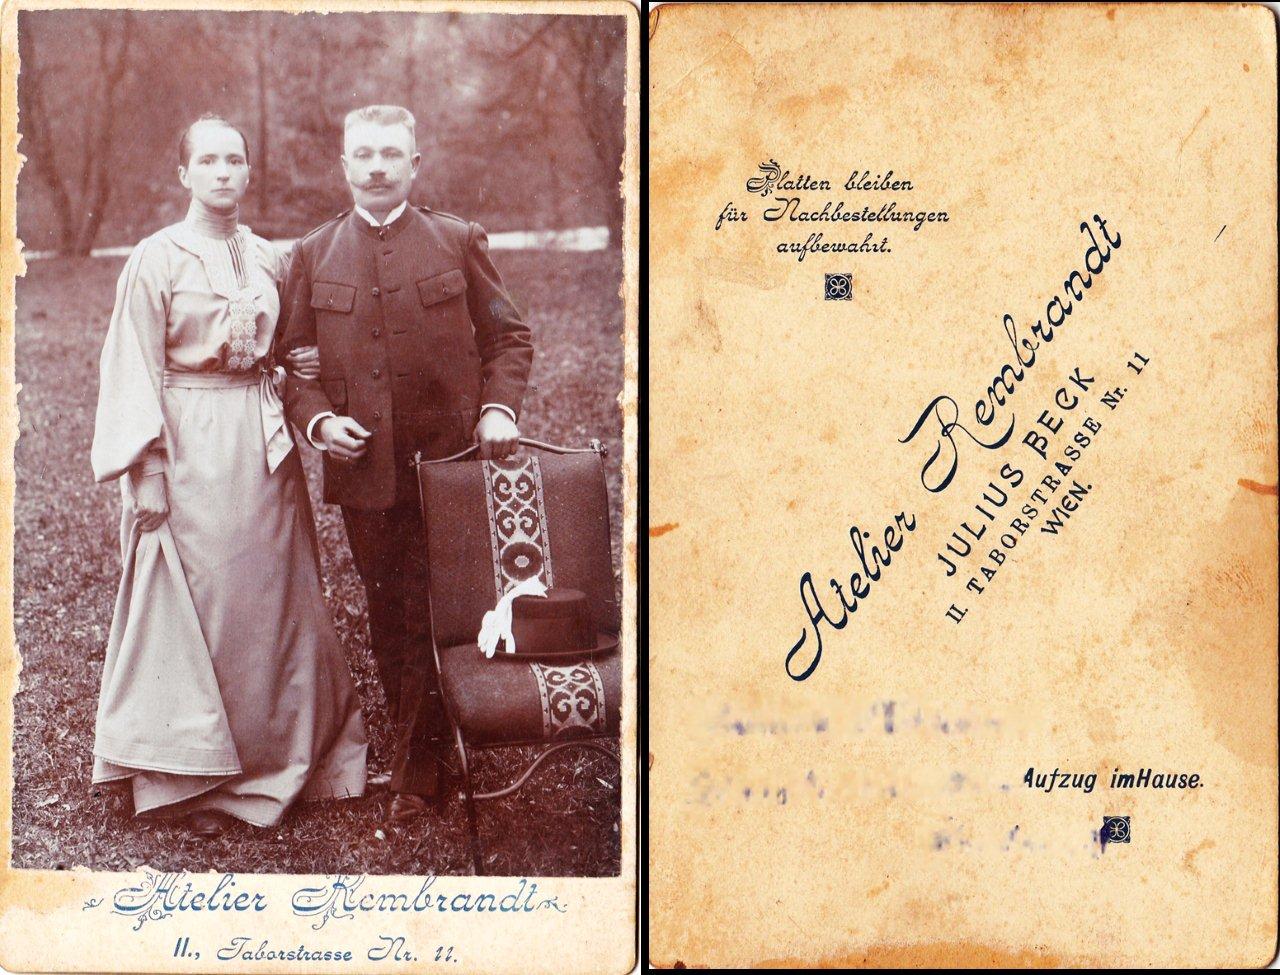 Atelier Rembrandt
II., Taborstrasse Nr. 11.
Platten bleiben
für Nachbestellungen
aufbewahrt.
Atelier Rembrandt
JULIUS BECK
II. TABORSTRASSE Nr. 11
WIEN.
Aufzug imHause.